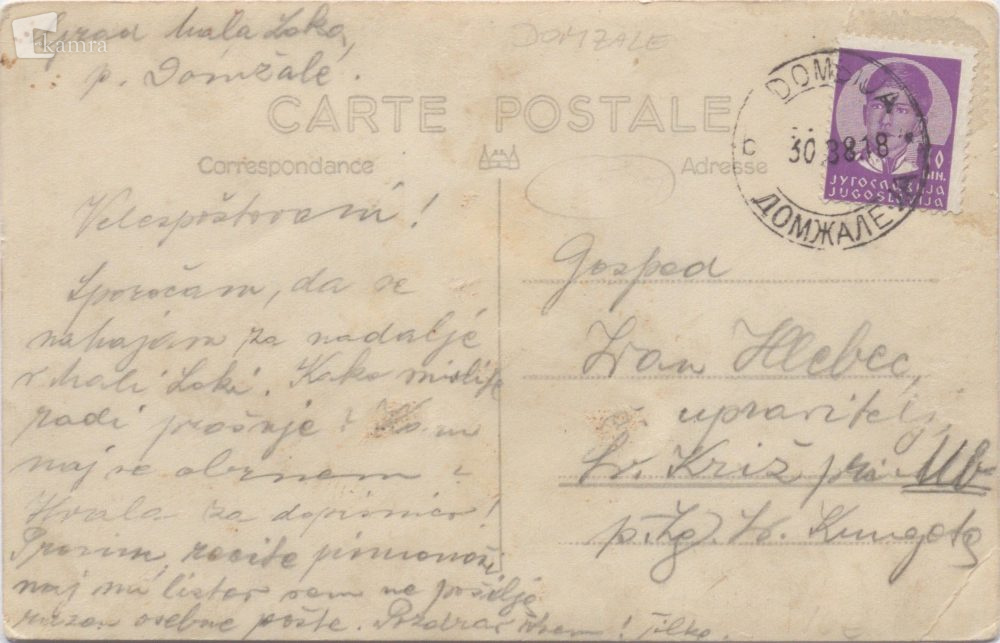 kamra
Grad Mala Loka,
p. Domžale.
DOMZALE
CARTE POSTALE
Correspondance
Adresse
30 38 18
ДОМЖАЛЕ
ЈУГОСЛАВИЈА
JUGOSLAVIJA
Velespoštovani!
Sporočam, da se
nahajam za nadalje
v Mali Loki. Kako mislite
radi prošnje? Kam
naj se obrnem?
Hvala za dopisnico!
Prosim, recite
naj mi listov sem ne pošilja
razen osebne pošte. Pozdrav Vam! Tilka.
Gospod
Ivan Hlebec,
upravitelj,
Sv. Križ pri Mb
p. Zg. Sv. Kungota